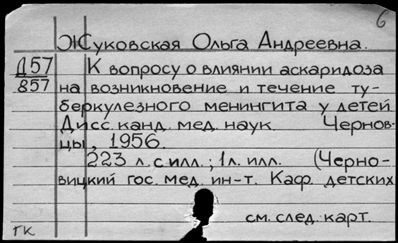 6
Жуковская Ольга Андреевна.
Д57
857
К вопросу о влиянии аскаридоза
на возникновение и течение ту-
беркулезного менингита у детей
Дисс. канд. мед. наук. Чернов-
цы, 1956.
223 л. с илл.; 1 л. илл. (Черно-
вицкий гос. мед. ин-т. Каф. детских
см. след. карт.
гк